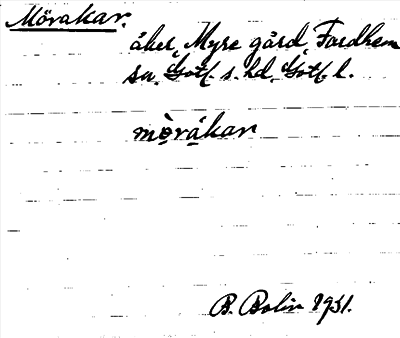 Mörakar.
åker, Myre gård, Fardhem
sn, Gotl. s. hd, Gotl. l.
mò̤rákar
B. Bolin 1931.